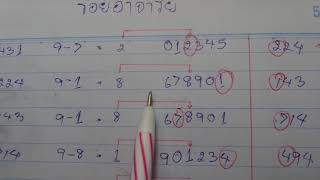 รอยอาจารย์
431 9-7 = 2 012345 224
224 9-1 = 8 678901 743
9-1 = 8 678901 714
9-8 = 1 901234 494